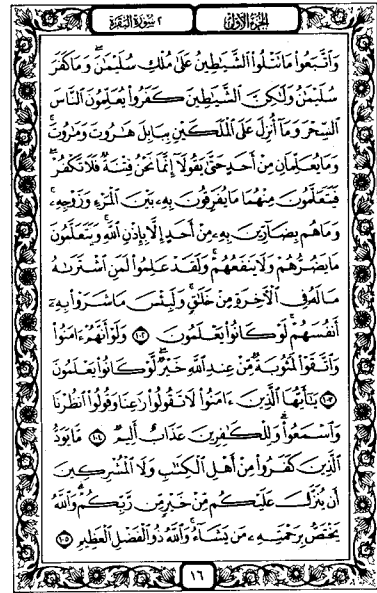 الجزء الأول
٢ سورة البقرة
وَاتَّبَعُوا۟ مَا تَتْلُوا۟ الشَّيَٰطِينُ عَلَىٰ مُلْكِ سُلَيْمَٰنَ ۖ وَمَا كَفَرَ
سُلَيْمَٰنُ وَلَٰكِنَّ الشَّيَٰطِينَ كَفَرُوا۟ يُعَلِّمُونَ النَّاسَ
السِّحْرَ وَمَآ أُنزِلَ عَلَى الْمَلَكَيْنِ بِبَابِلَ هَٰرُوتَ وَمَٰرُوتَ ۚ
وَمَا يُعَلِّمَانِ مِنْ أَحَدٍ حَتَّىٰ يَقُولَآ إِنَّمَا نَحْنُ فِتْنَةٌ فَلَا تَكْفُرْ ۖ
فَيَتَعَلَّمُونَ مِنْهُمَا مَا يُفَرِّقُونَ بِهِۦ بَيْنَ الْمَرْءِ وَزَوْجِهِۦ ۚ
وَمَا هُم بِضَآرِّينَ بِهِۦ مِنْ أَحَدٍ إِلَّا بِإِذْنِ اللَّهِ ۚ وَيَتَعَلَّمُونَ
مَا يَضُرُّهُمْ وَلَا يَنفَعُهُمْ ۚ وَلَقَدْ عَلِمُوا۟ لَمَنِ اشْتَرَىٰهُ
مَا لَهُۥ فِى الْءَاخِرَةِ مِنْ خَلَٰقٍ ۚ وَلَبِئْسَ مَا شَرَوْا۟ بِهِۦٓ
أَنفُسَهُمْ ۚ لَوْ كَانُوا۟ يَعْلَمُونَ ١٠٢ وَلَوْ أَنَّهُمْ ءَامَنُوا۟
وَاتَّقَوْا۟ لَمَثُوبَةٌ مِّنْ عِندِ اللَّهِ خَيْرٌ ۖ لَّوْ كَانُوا۟ يَعْلَمُونَ
١٠٣ يَٰٓأَيُّهَا الَّذِينَ ءَامَنُوا۟ لَا تَقُولُوا۟ رَٰعِنَا وَقُولُوا۟ انظُرْنَا
وَاسْمَعُوا۟ ۗ وَلِلْكَٰفِرِينَ عَذَابٌ أَلِيمٌ ١٠٤ مَّا يَوَدُّ
الَّذِينَ كَفَرُوا۟ مِنْ أَهْلِ الْكِتَٰبِ وَلَا الْمُشْرِكِينَ
أَن يُنَزَّلَ عَلَيْكُم مِّنْ خَيْرٍ مِّن رَّبِّكُمْ ۗ وَاللَّهُ
يَخْتَصُّ بِرَحْمَتِهِۦ مَن يَشَآءُ ۚ وَاللَّهُ ذُو الْفَضْلِ الْعَظِيمِ ١٠٥
١٦